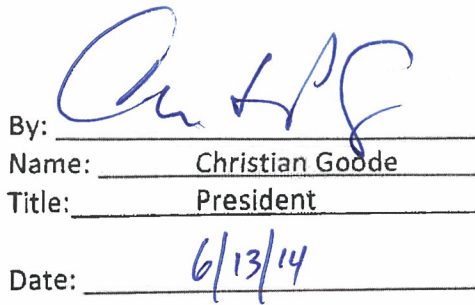 By:
Name: Christian Goode
Title: President
Date: 6/13/14